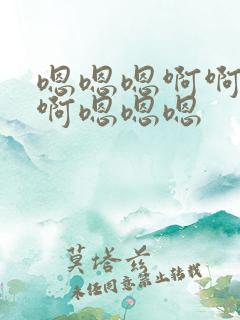 嗯嗯嗯啊啊
啊嗯嗯嗯
莫塔兰
未经同意禁止转载